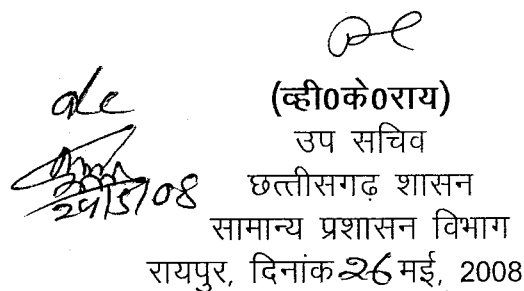 (व्ही0के0राय)
उप सचिव
छत्तीसगढ़ शासन
सामान्य प्रशासन विभाग
रायपुर, दिनांक 26 मई, 2008